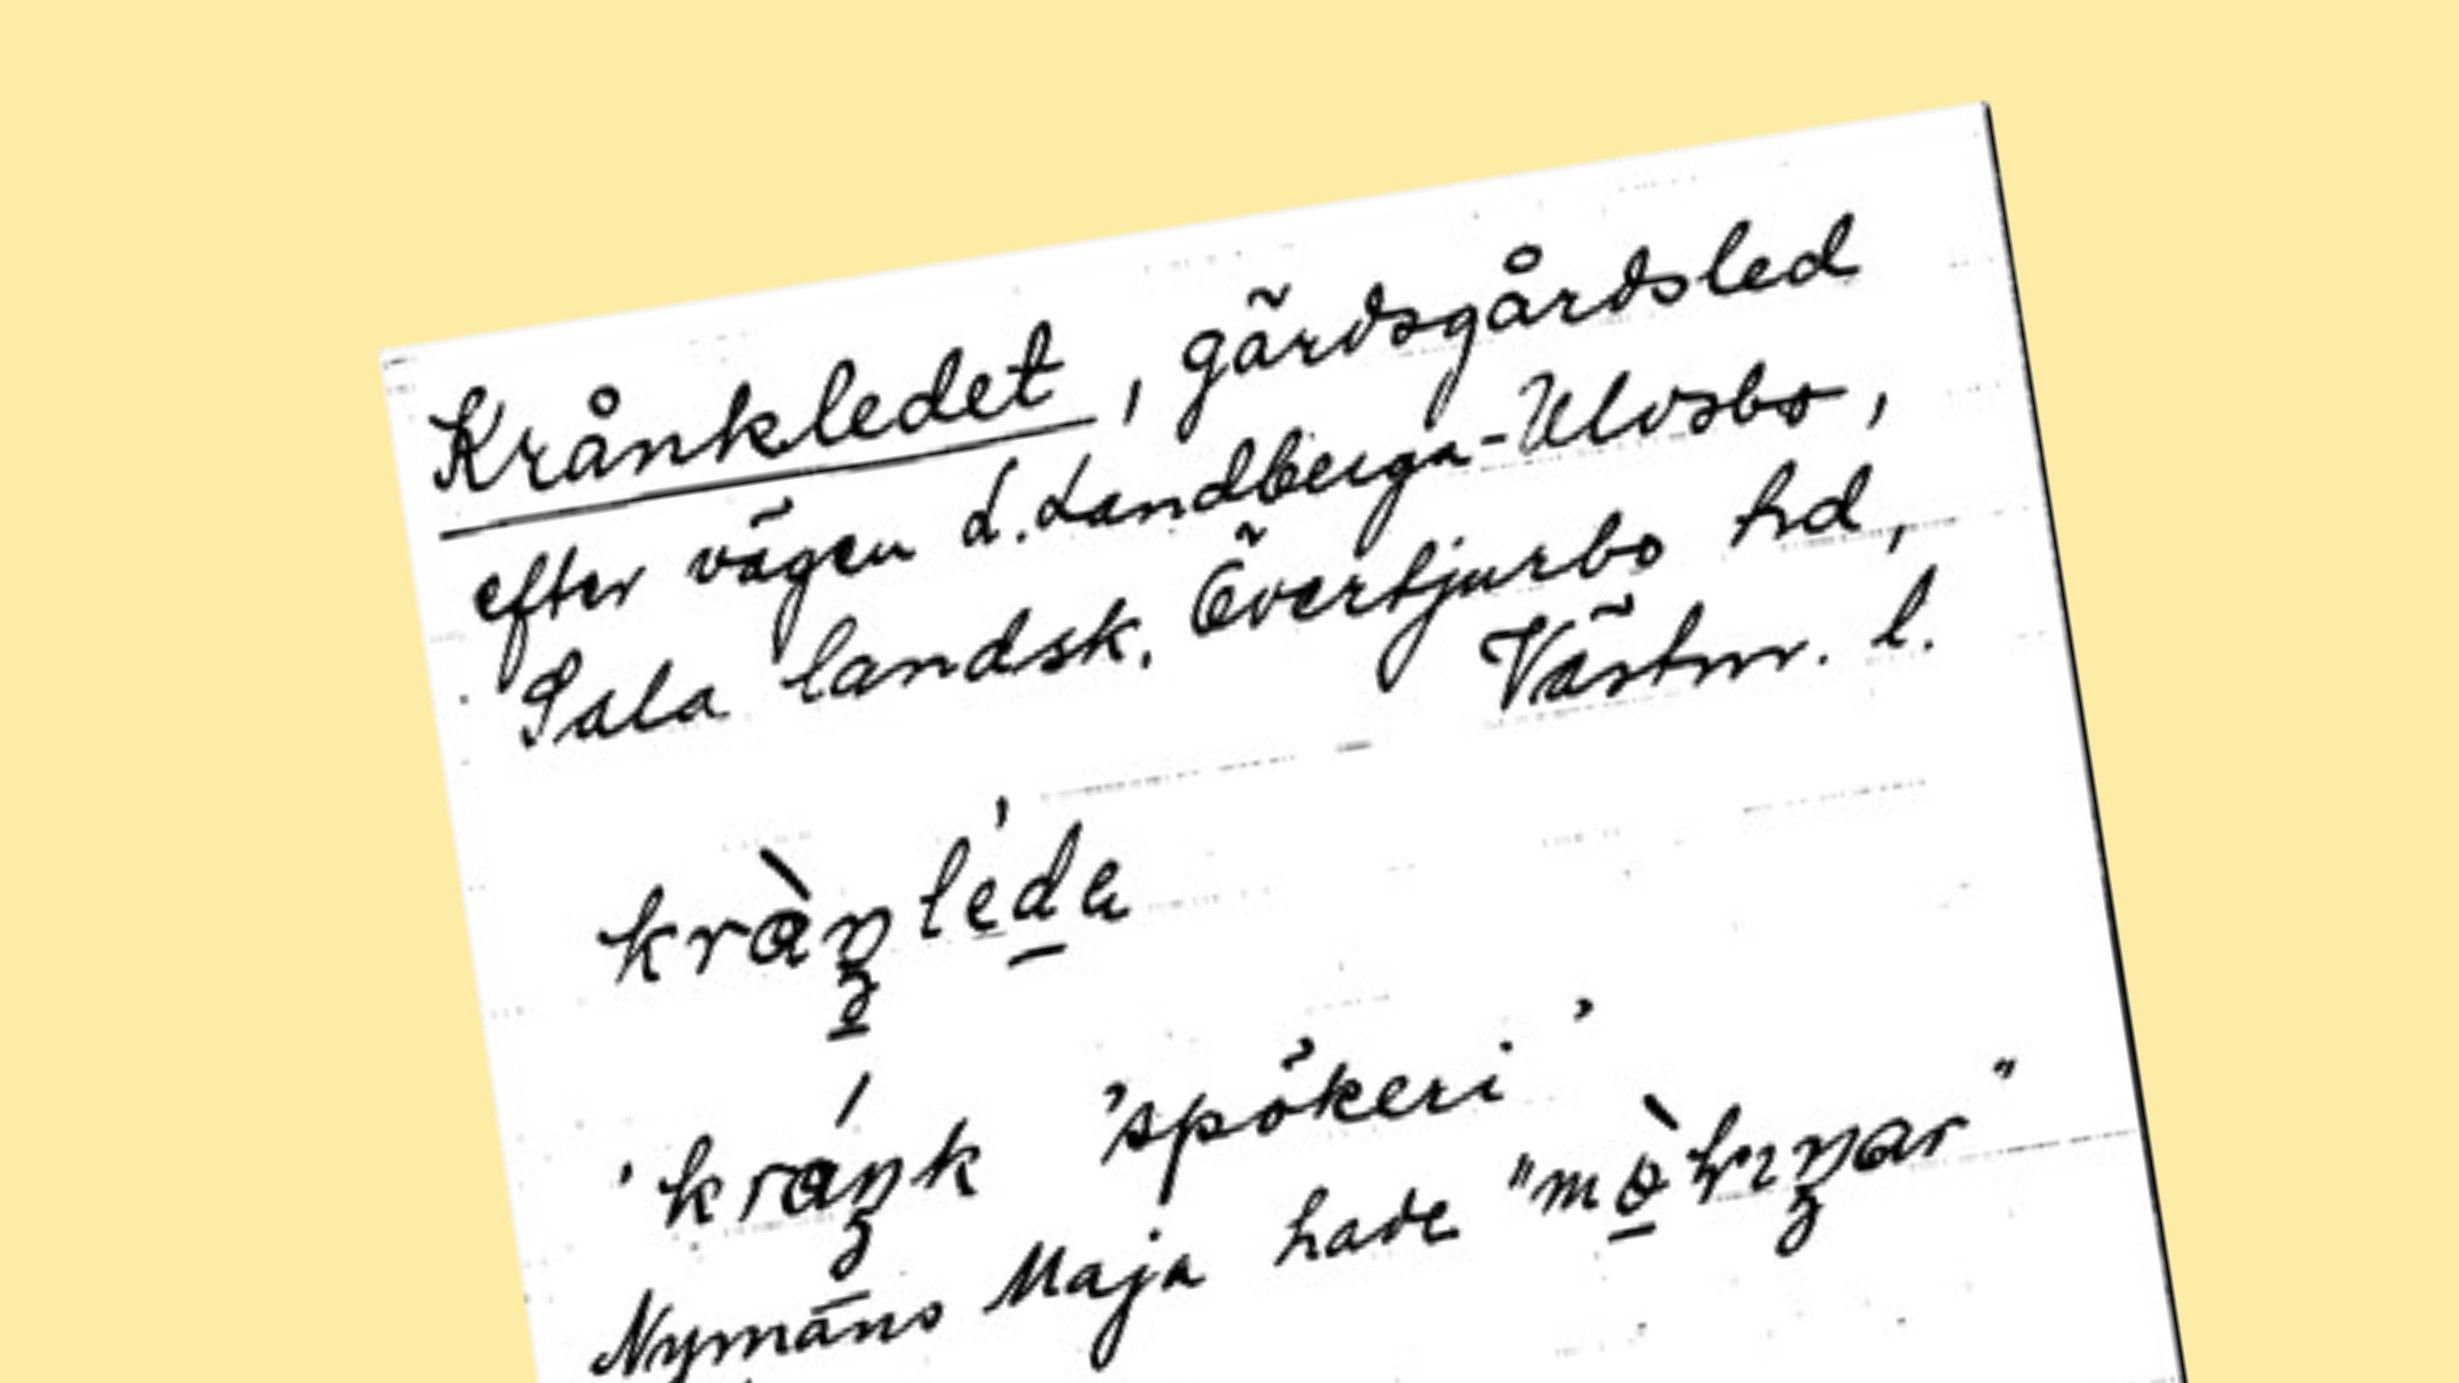 Krånkledet, gärdsgårdsled
efter vägen L. Landberga-Ulvsbo,
Sala landsk. Övertjurbo hd,
Västm. l.
'kráŋk 'spökeri'
Nymäns Maja hade